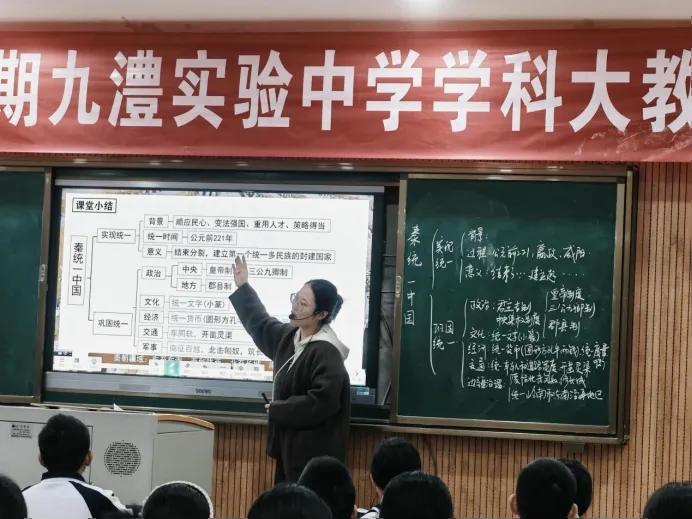 期九澧实验中学学科大教
课堂小结
秦统一中国
实现统一
背景 顺应民心、变法强国、重用人才、策略得当
统一时间 公元前221年
意义 结束分裂，建立第一个统一多民族的封建国家
巩固统一
政治
中央 皇帝制 三公九卿制
地方 郡县制
文化 统一文字(小篆)
经济 统一货币(圆形方孔
交通 车同轨、开凿灵渠
军事 南征百越，北击匈奴，筑长
秦统一中国
实现统一
背景
过程:公元前221,嬴政,咸阳
意义:结束 建立起
巩固统一
政治:
皇帝制度
三公九卿制
郡县制
文化:统一文字(小篆)
经济:统一货币(圆形方孔半两钱)统一度量衡
交通:统一车辆和道路宽度 开凿灵渠